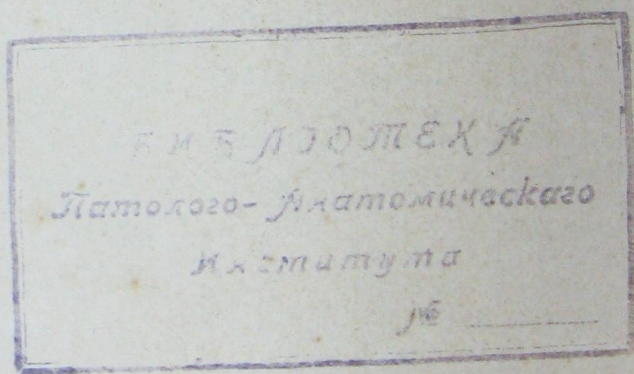 БИБЛІОТЕКА
Патолого-Анатомическаго
Института
№